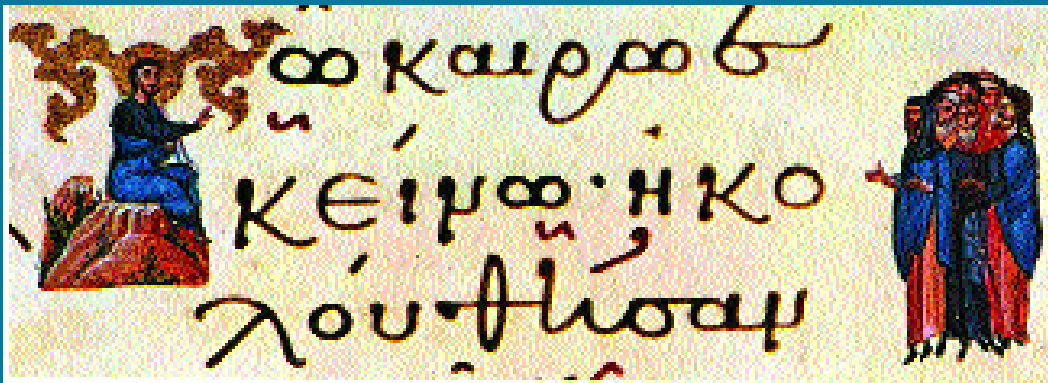 Τῶ καιρῶ ἐ
κείνω· ἠκο
λούθησαν